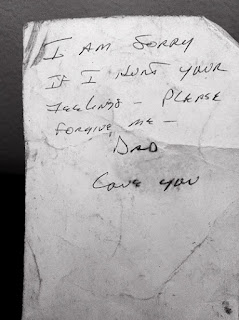 I AM SORRY
IF I HURT YOUR
FEELINGS - PLEASE
FORGIVE ME -
DAD
LOVE YOU